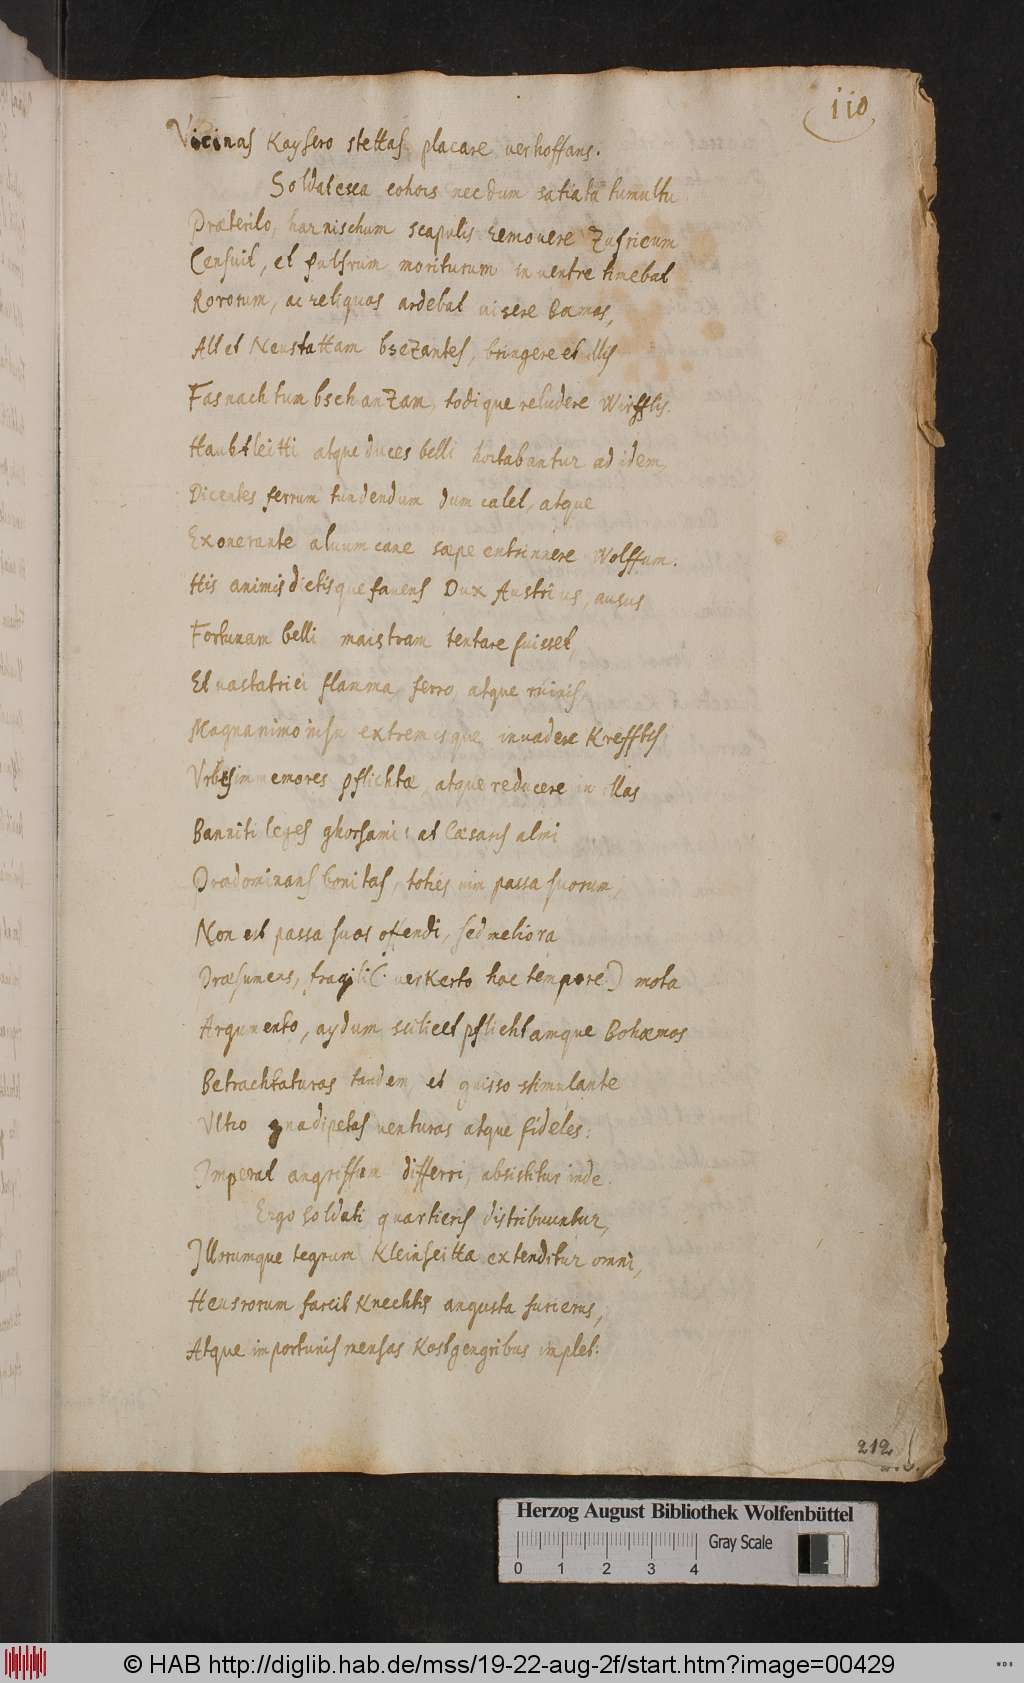 110
Vicinas Kaysero stettas placare verhoffans.
Soldatesca cohors necdum satiata tumultu
Præterito, harnischum scapulis removere Zufricum
Censuit, et pulfrum moriturum in ventre timebat
Rororum, ac reliquas ardebat visere Bœmas,
Alt et Neustattam bsezantes, bringere et illis
Fasnachtum bschanzam, todique reludere Wirfflis.
Haubtleitti atque duces belli hortabantur ad idem,
Dicentes ferrum tundendum dum calet, atque
Exonerante alvum cane sæpe entrinnere Wolffum.
His animis dictisque favens Dux Austrius, ausus
Fortunam belli maistram tentare fuisset,
Et vastatrici flamma, ferro, atque ruinis,
Magnanimo nisu extremisque invadere Krefftis
Vrbes immemores pflichtæ, atque reducere in illas
Banniti leges ghorsami: at Cæsaris almi
Prædominans bonitas, toties vim passa suorum,
Non est passa suos offendi, sed meliora
Præsumens, fragili (verkerto hac tempore) mota
Argumento, aydum scilicet pflichtamque Bohæmos
Betrachtaturas tandem, et gwisso stimulante
Vltro gnadipetas venturas atque fideles:
Imperat angriffum differri, absistitur inde.
Ergo soldati quartieris distribuuntur,
Illorumque tegrum Kleinseitta extenditur omni,
Heusrorum farcit Knechtis angusta furierus,
Atque importunis mensas Kostgengribus implet:
212
Herzog August Bibliothek Wolfenbüttel
Gray Scale
0 1 2 3 4
© HAB http://diglib.hab.de/mss/19-22-aug-2f/start.htm?image=00429